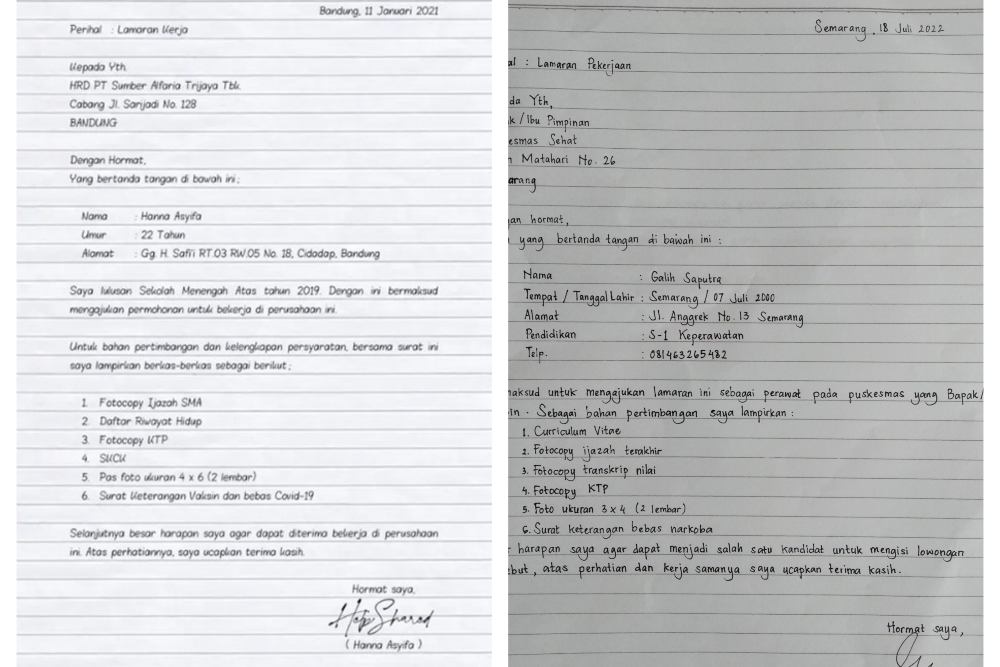 Bandung, 11 Januari 2021
Perihal : Lamaran Kerja
Kepada Yth.
HRD PT Sumber Alfaria Trijaya Tbk.
Cabang Jl. Sarijadi No. 128
BANDUNG
Dengan Hormat,
Yang bertanda tangan di bawah ini ;
Nama : Hanna Asyifa
Umur : 22 Tahun
Alamat : Gg. H. Safi'i RT.03 RW.05 No. 18, Cidadap, Bandung
Saya lulusan Sekolah Menengah Atas tahun 2019. Dengan ini bermaksud
mengajukan permohonan untuk bekerja di perusahaan ini.
Untuk bahan pertimbangan dan kelengkapan persyaratan, bersama surat ini
saya lampirkan berkas-berkas sebagai berikut ;
1. Fotocopy Ijazah SMA
2. Daftar Riwayat Hidup
3. Fotocopy KTP
4. SKCK
5. Pas foto ukuran 4 x 6 (2 lembar)
6. Surat Keterangan Vaksin dan bebas Covid-19
Selanjutnya besar harapan saya agar dapat diterima bekerja di perusahaan
ini. Atas perhatiannya, saya ucapkan terima kasih.
Hormat saya,
HelpShared
( Hanna Asyifa )
Semarang, 18 Juli 2022
al : Lamaran Pekerjaan
da Yth,
k / Ibu Pimpinan
esmas Sehat
n Matahari No. 26
arang
an hormat,
yang bertanda tangan di bawah ini :
Nama : Galih Saputra
Tempat / Tanggal Lahir : Semarang / 07 Juli 2000
Alamat : Jl. Anggrek No. 13 Semarang
Pendidikan : S-1 Keperawatan
Telp. : 081463265482
maksud untuk mengajukan lamaran ini sebagai perawat pada puskesmas yang Bapak/
in. Sebagai bahan pertimbangan saya lampirkan :
1. Curriculum Vitae
2. Fotocopy ijazah terakhir
3. Fotocopy transkrip nilai
4. Fotocopy KTP
5. Foto ukuran 3 x 4 (2 lembar)
6. Surat keterangan bebas narkoba
harapan saya agar dapat menjadi salah satu kandidat untuk mengisi lowongan
but, atas perhatian dan kerja samanya saya ucapkan terima kasih.
Hormat saya,